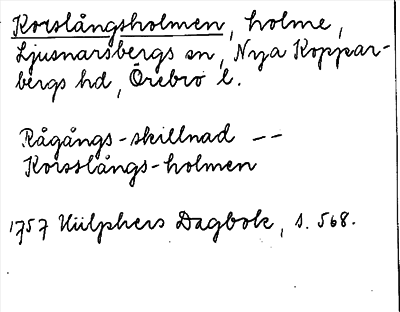 Korslångsholmen, holme,
Ljusnarsbergs sn, Nya Koppar-
bergs hd, Örebro l.
Rågångs-skillnad --
Korsslångs-holmen
1757 Hülphers Dagbok, s. 568.